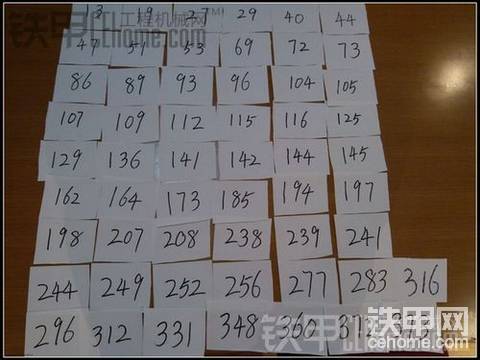 13 19 27 29 40 44
47 51 53 69 72 73
86 89 93 96 104 105
107 109 112 115 116 125
129 136 141 142 144 145
162 164 173 185 194 197
198 207 208 238 239 241
244 249 252 256 277 283 316
296 312 331 348 360
铁甲 工程机械网
cehome.com
铁甲网
cehome.com